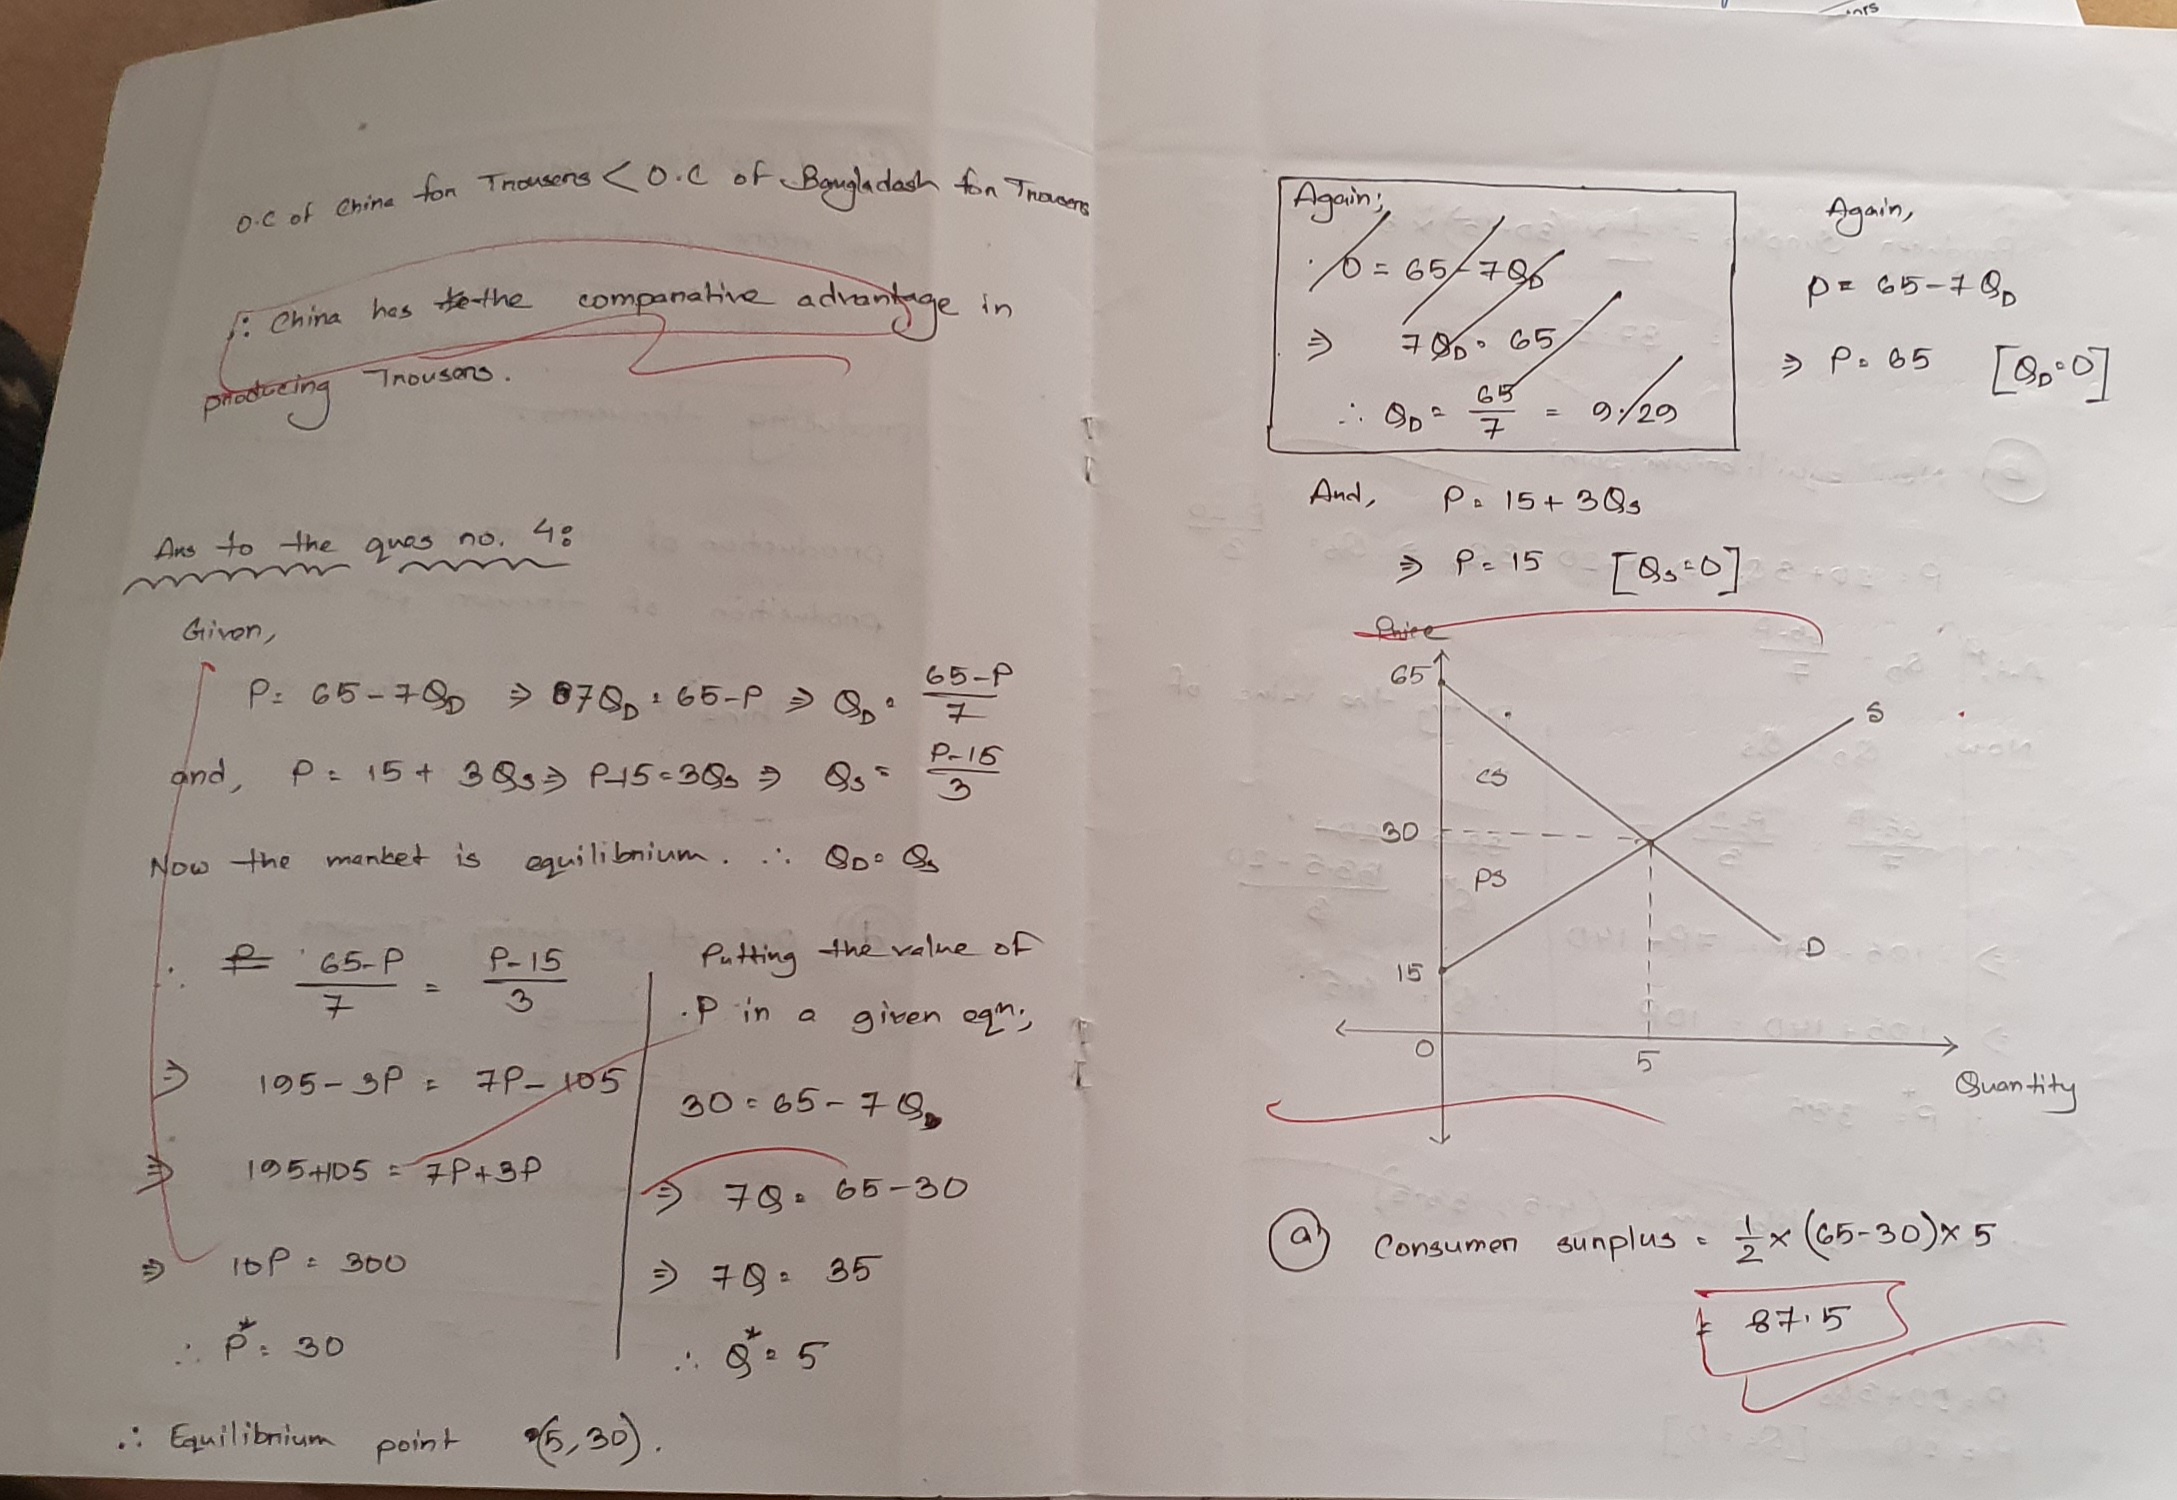 O.C of China for Trousers < O.C of Bangladash for Trousers
∴ China has the comparative advantage in
producing Trousers.
Ans to the ques no. 4:
Given,
P = 65 - 7Q_D ⇒ 7Q_D = 65-P ⇒ Q_D = (65-P)/7
and, P = 15 + 3Q_S ⇒ P-15 = 3Q_S ⇒ Q_S = (P-15)/3
Now the market is equilibrium. ∴ Q_D = Q_S
∴ (65-P)/7 = (P-15)/3
⇒ 195 - 3P = 7P - 105
⇒ 195+105 = 7P+3P
⇒ 10P = 300
∴ P* = 30
Putting the value of
P in a given eqn;
30 = 65 - 7Q_D
⇒ 7Q = 65-30
⇒ 7Q = 35
∴ Q* = 5
∴ Equilibrium point (5,30).
Again;
0 = 65 - 7Q_D
⇒ 7Q_D = 65
∴ Q_D = 65/7 = 9.29
Again,
P = 65 - 7Q_D
⇒ P = 65 [Q_D = 0]
And, P = 15 + 3Q_S
⇒ P = 15 [Q_S = 0]
Price
65
S
CS
30
PS
D
15
0
5
Quantity
a) Consumer surplus = 1/2 × (65-30) × 5
= 87.5